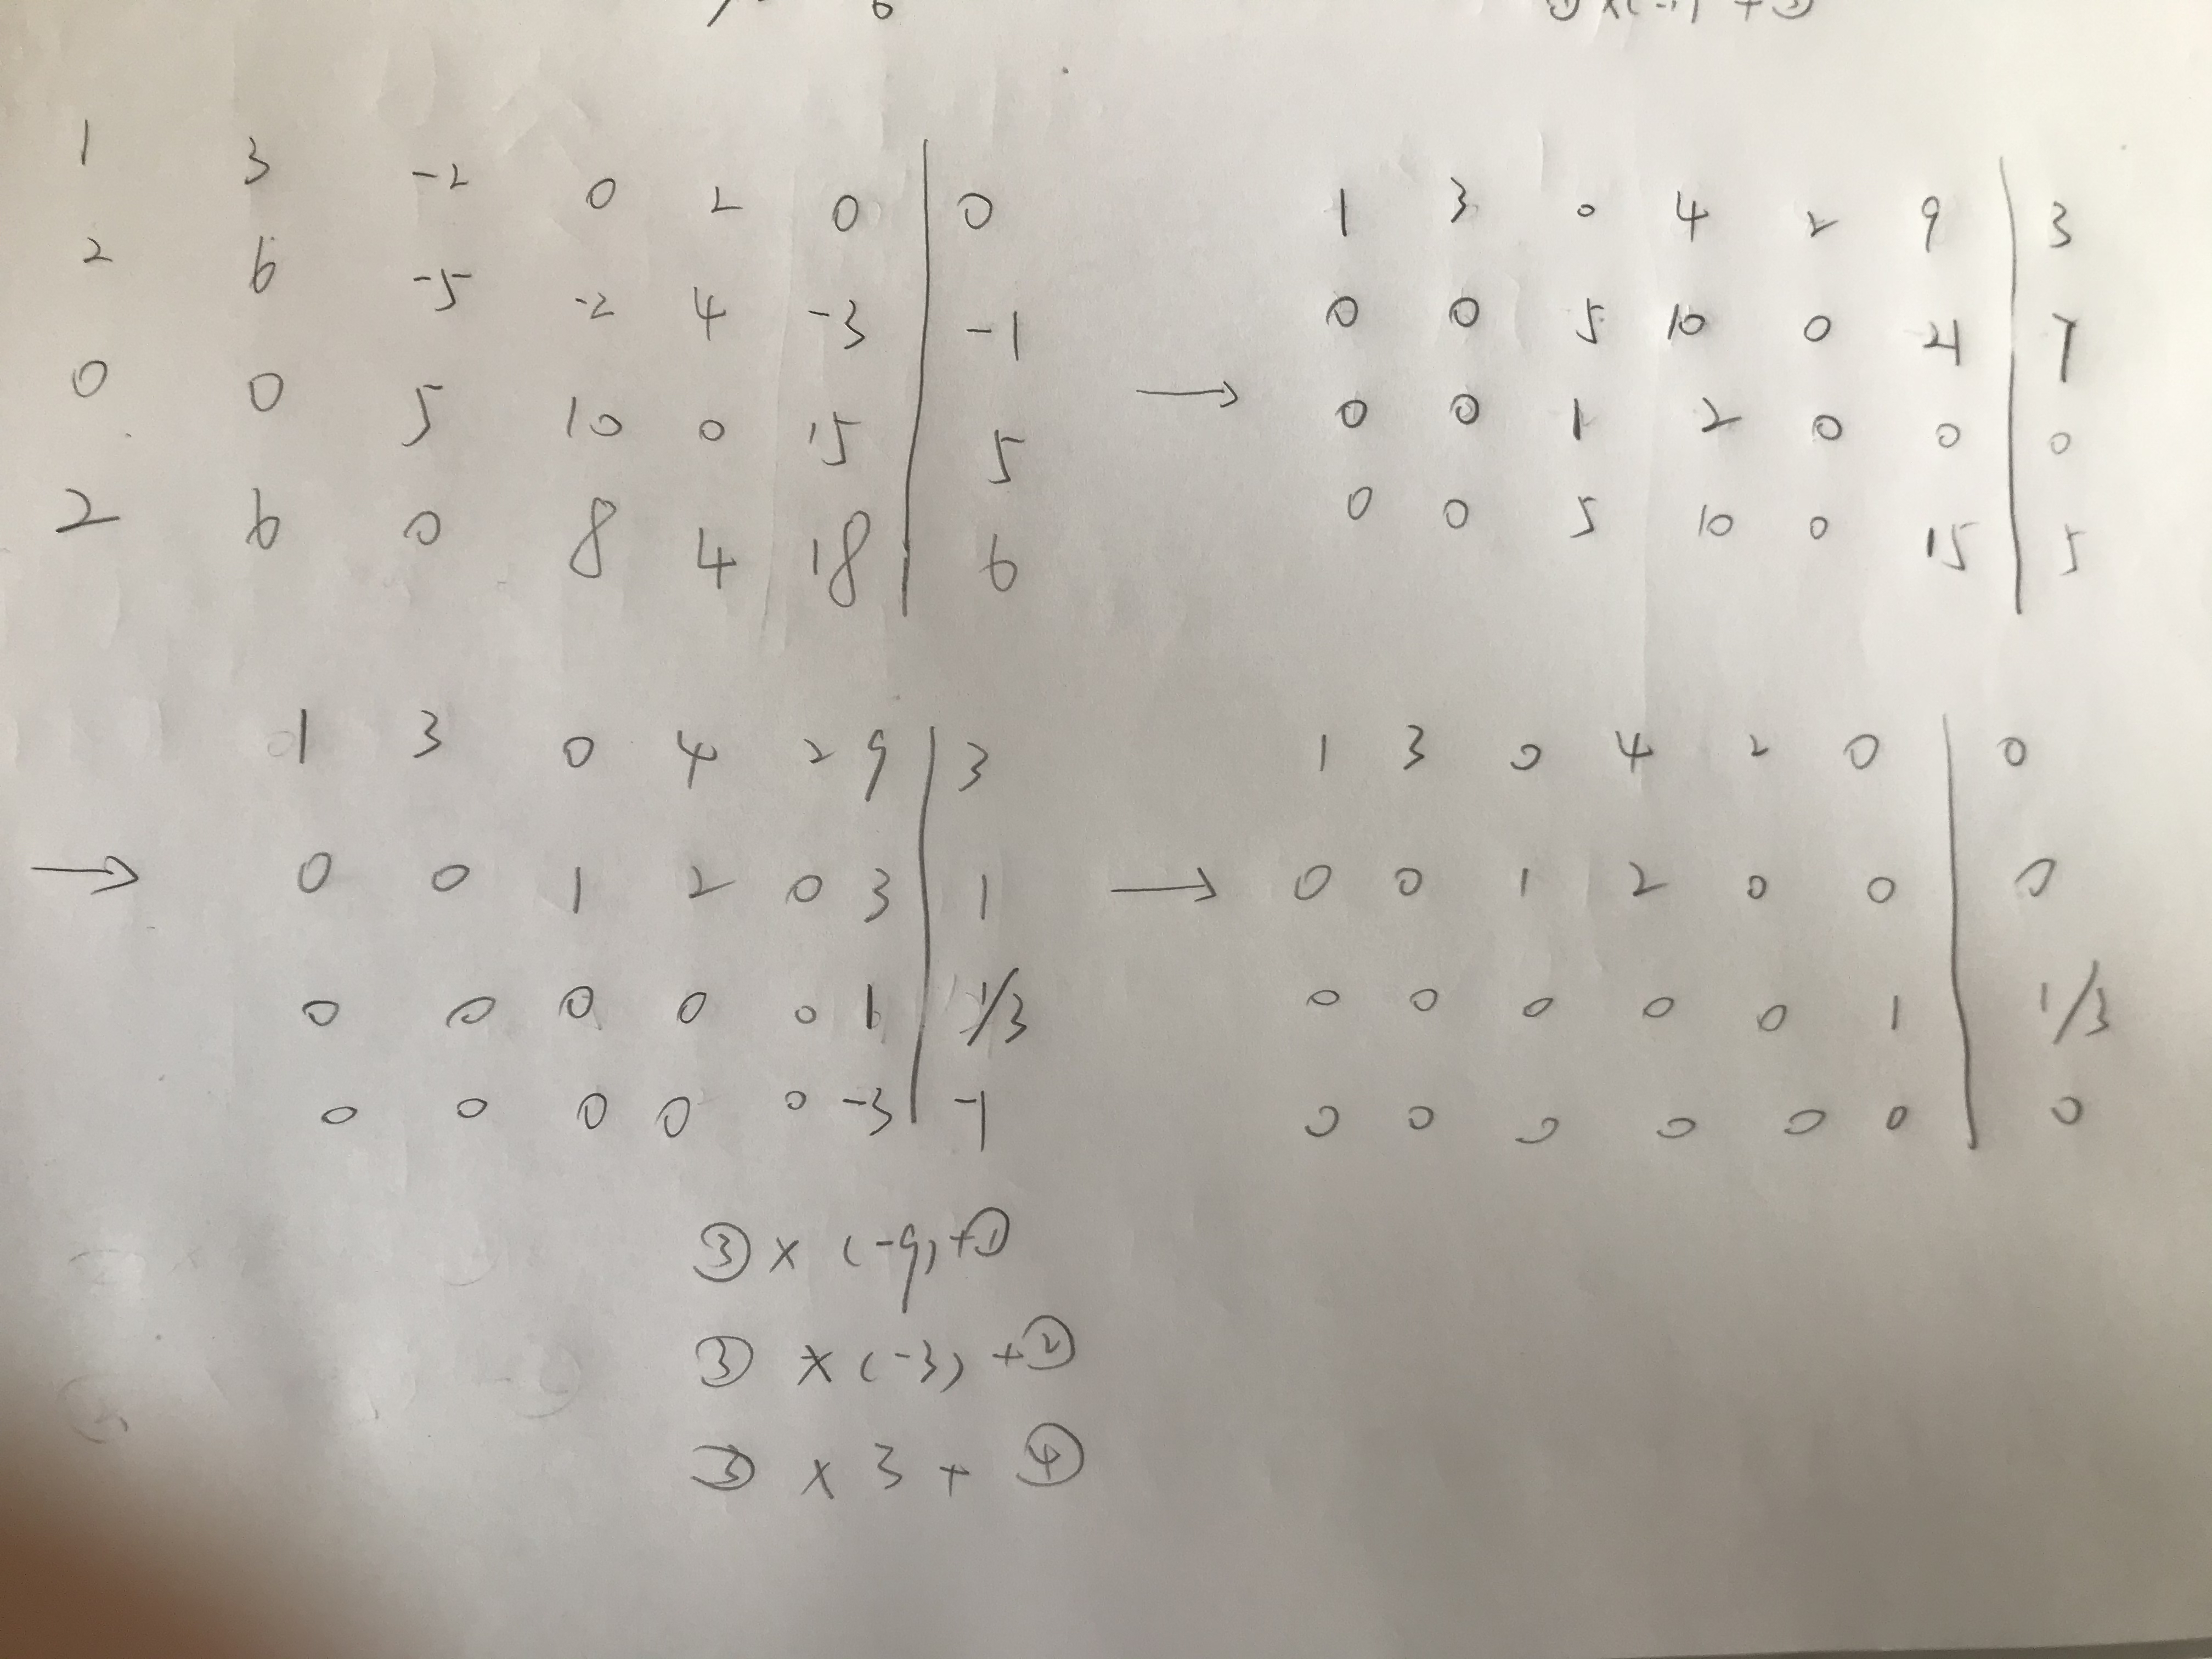 1 3 -2 0 2 0 | 0
2 6 -5 -2 4 -3 | -1
0 0 5 10 0 15 | 5
2 6 0 8 4 18 | 6
→
1 3 0 4 2 9 | 3
0 0 5 10 0 21 | 7
0 0 1 2 0 0 | 0
0 0 5 10 0 15 | 5
→
1 3 0 4 2 9 | 3
0 0 1 2 0 3 | 1
0 0 0 0 0 1 | 1/3
0 0 0 0 0 -3 | -1
→
1 3 0 4 2 0 | 0
0 0 1 2 0 0 | 0
0 0 0 0 0 1 | 1/3
0 0 0 0 0 0 | 0
③ × (-9) + ①
③ × (-3) + ②
③ × 3 + ④